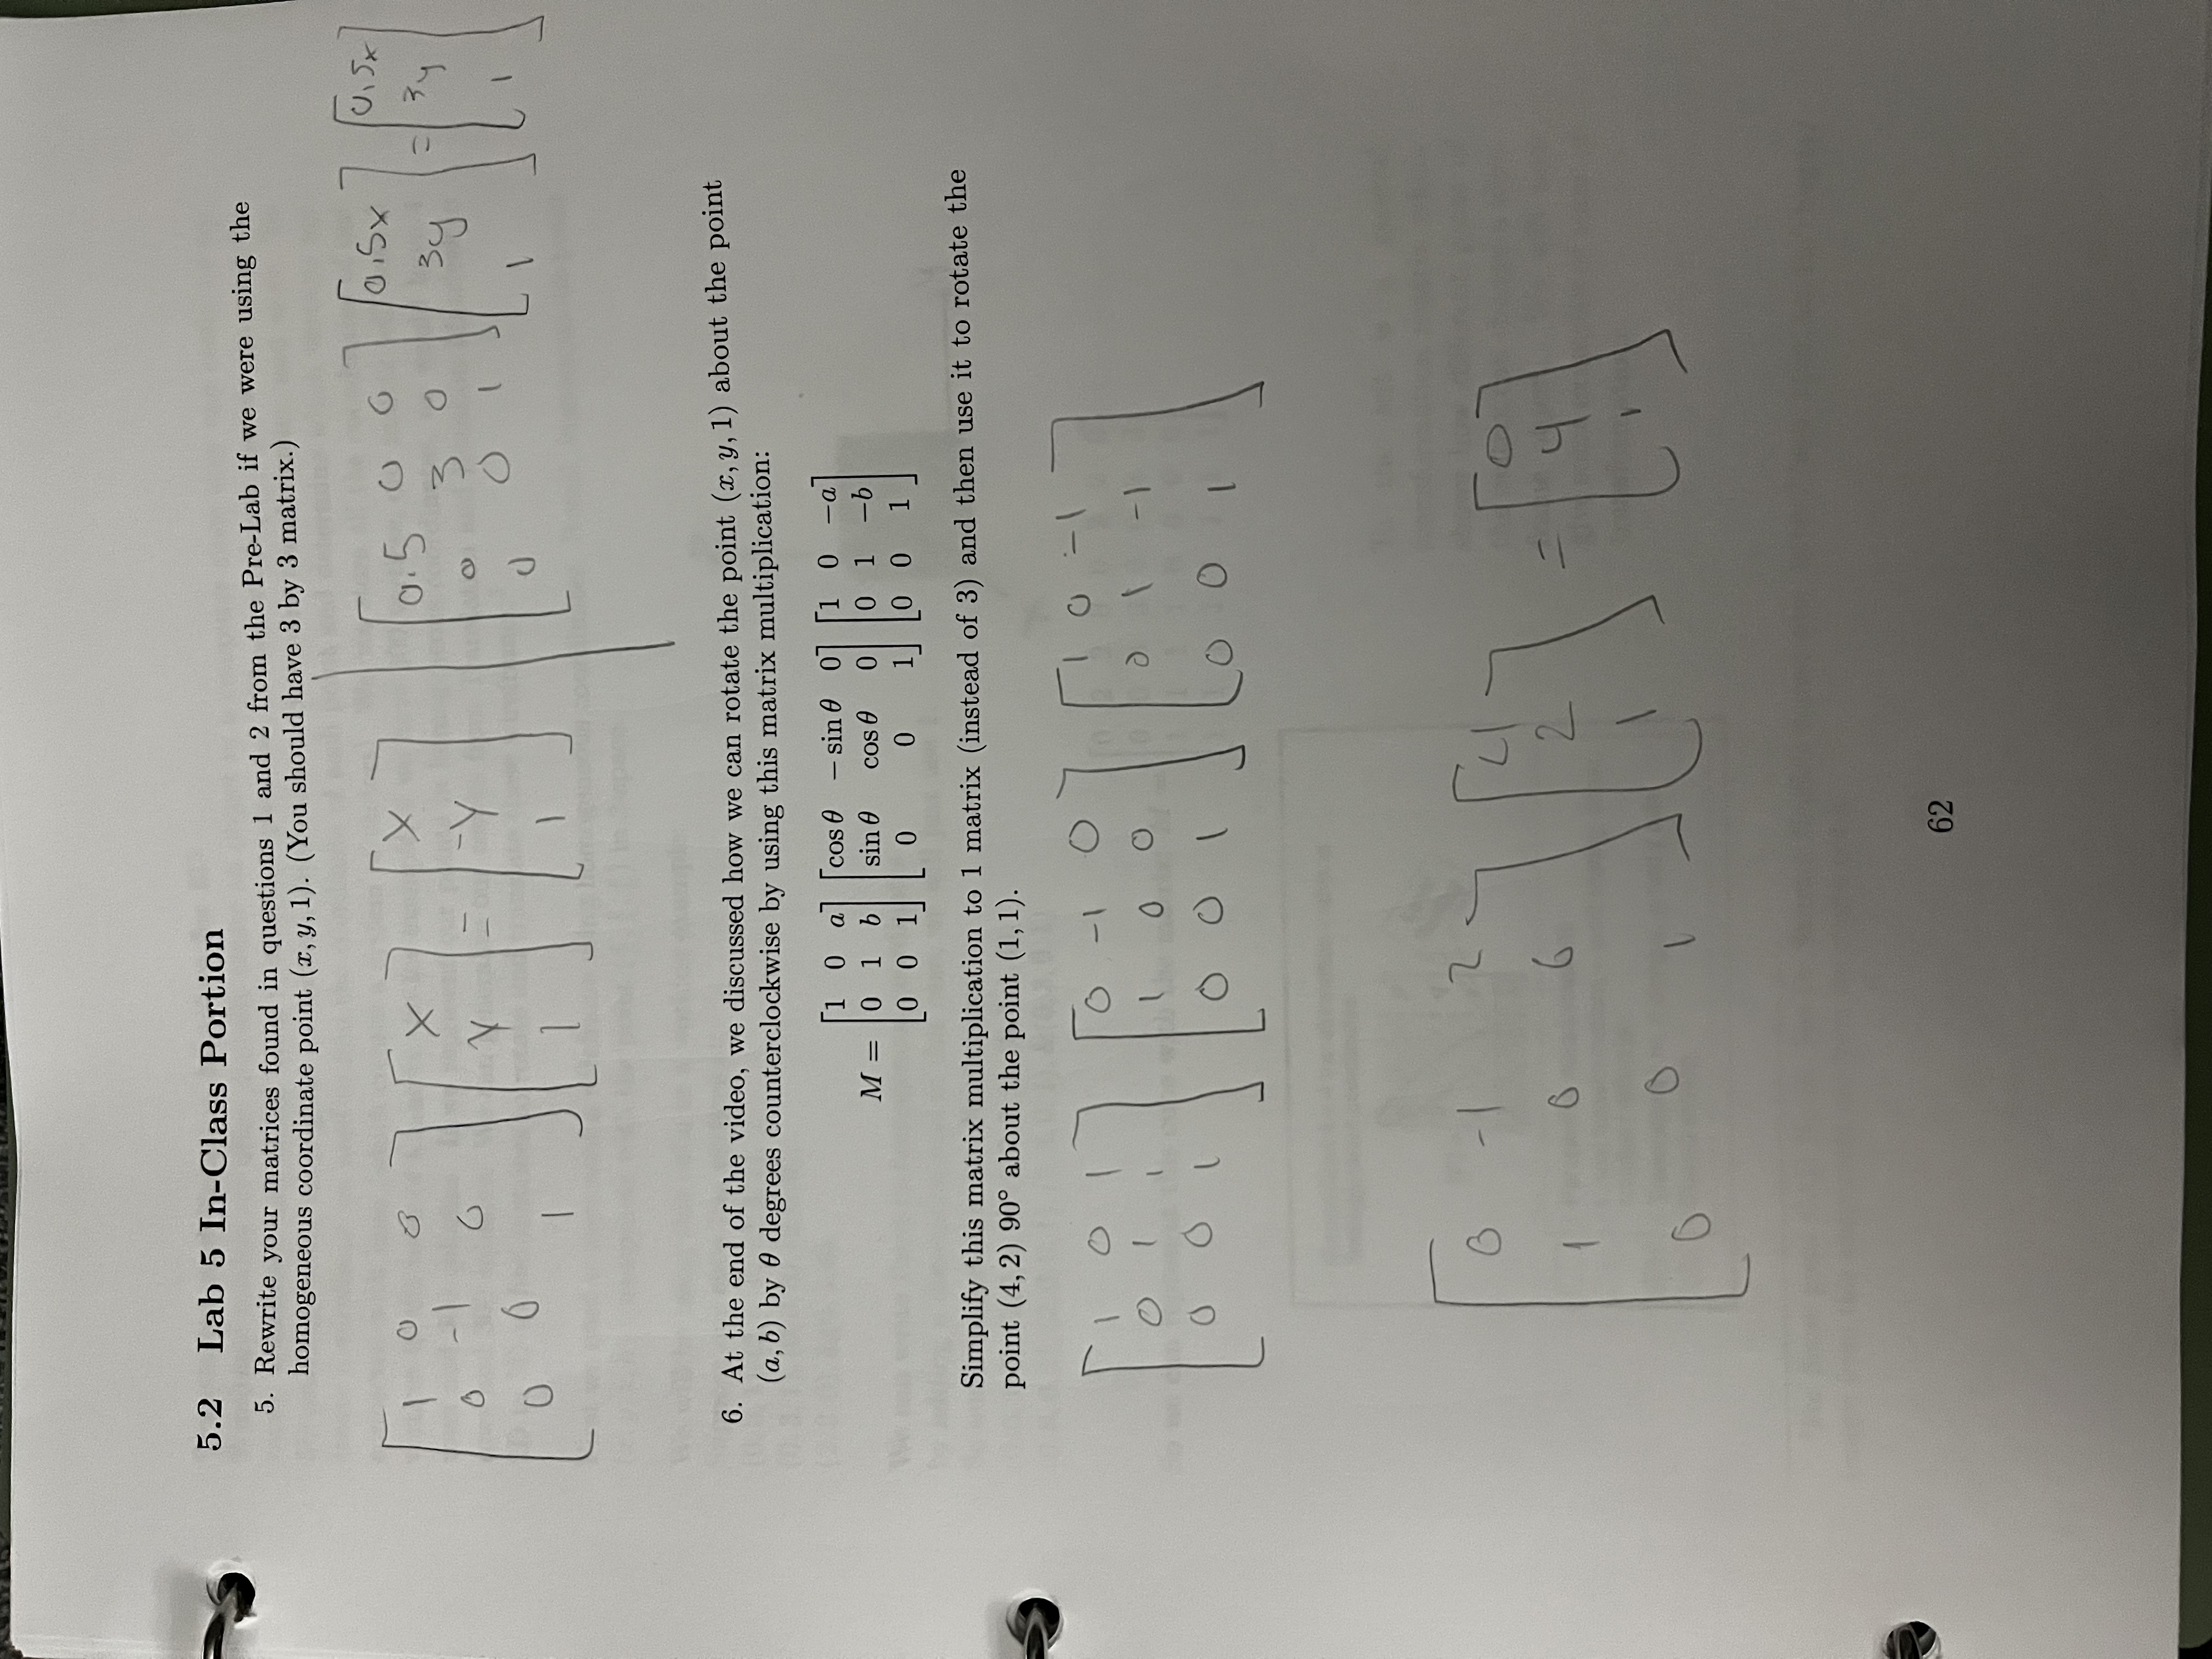 5.2 Lab 5 In-Class Portion
5. Rewrite your matrices found in questions 1 and 2 from the Pre-Lab if we were using the
homogeneous coordinate point (x, y, 1). (You should have 3 by 3 matrix.)
[1 0 0] [x] = [x] | [0.5 0 0] [0.5x] = [0.5x]
[0 -1 0] [y] [-y] | [0 3 0] [3y] [3y]
[0 0 1] [1] [1] | [0 0 1] [1] [1]
6. At the end of the video, we discussed how we can rotate the point (x, y, 1) about the point
(a, b) by θ degrees counterclockwise by using this matrix multiplication:
[1 0 a] [cos θ − sin θ 0] [1 0 −a]
M = [0 1 b] [sin θ cos θ 0] [0 1 −b]
[0 0 1] [0 0 1] [0 0 1]
Simplify this matrix multiplication to 1 matrix (instead of 3) and then use it to rotate the
point (4, 2) 90° about the point (1, 1).
[1 0 1] [0 -1 0] [1 0 -1]
[0 1 1] [1 0 0] [0 1 -1]
[0 0 1] [0 0 1] [0 0 1]
[0 -1 2] [4] [0]
[1 0 6] [2] = [4]
[0 0 1] [1] [1]
62